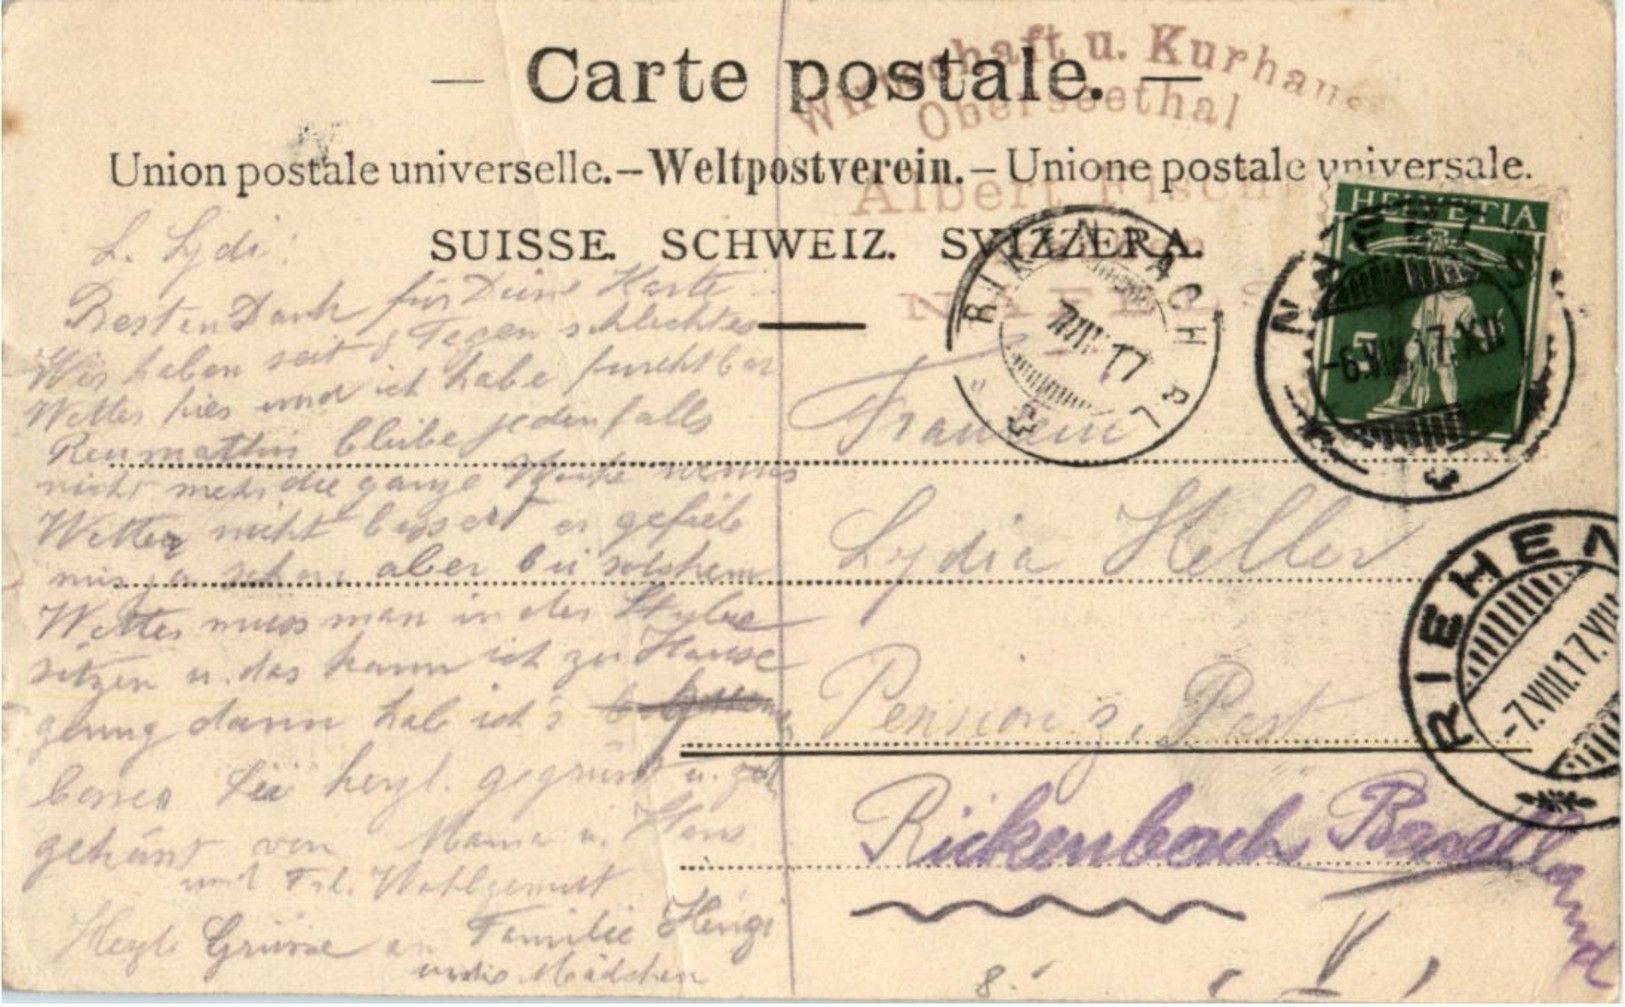 — Carte postale. —
Wirtschaft u. Kurhaus
Oberseethal
Union postale universelle. – Weltpostverein. – Unione postale universale.
Albert
NÄFELS
SUISSE. SCHWEIZ. SVIZZERA.
HELVETIA
5
NÄFELS
-6.VIII.17.XII
RIKENBACH BL
7.VIII.17
RIEHEN
-7.VIII.17.VIII
L. Lydi!
Besten Dank für Deine Karte.
Wir haben seit 8 Tagen schlechtes
Wetter hier und ich habe furchtbar
Reumathis bleibe jedenfalls
nicht mehr die ganze Woche wenns
Wetter nicht bessert es gefiele
mir ja schon aber bei solchem
Wetter muss man in der Stube
sitzen u. das kann ich zu Hause
genug dann hab ich's
besser Sei herzl. gegrüsst u.
von Mama u. Hans
und Frl. Wohlgemutt
Herzl. Grüsse an Familie
Mädchen
Fräulein
Lydia Heller
Pension z. Post
Rickenbach Baselland